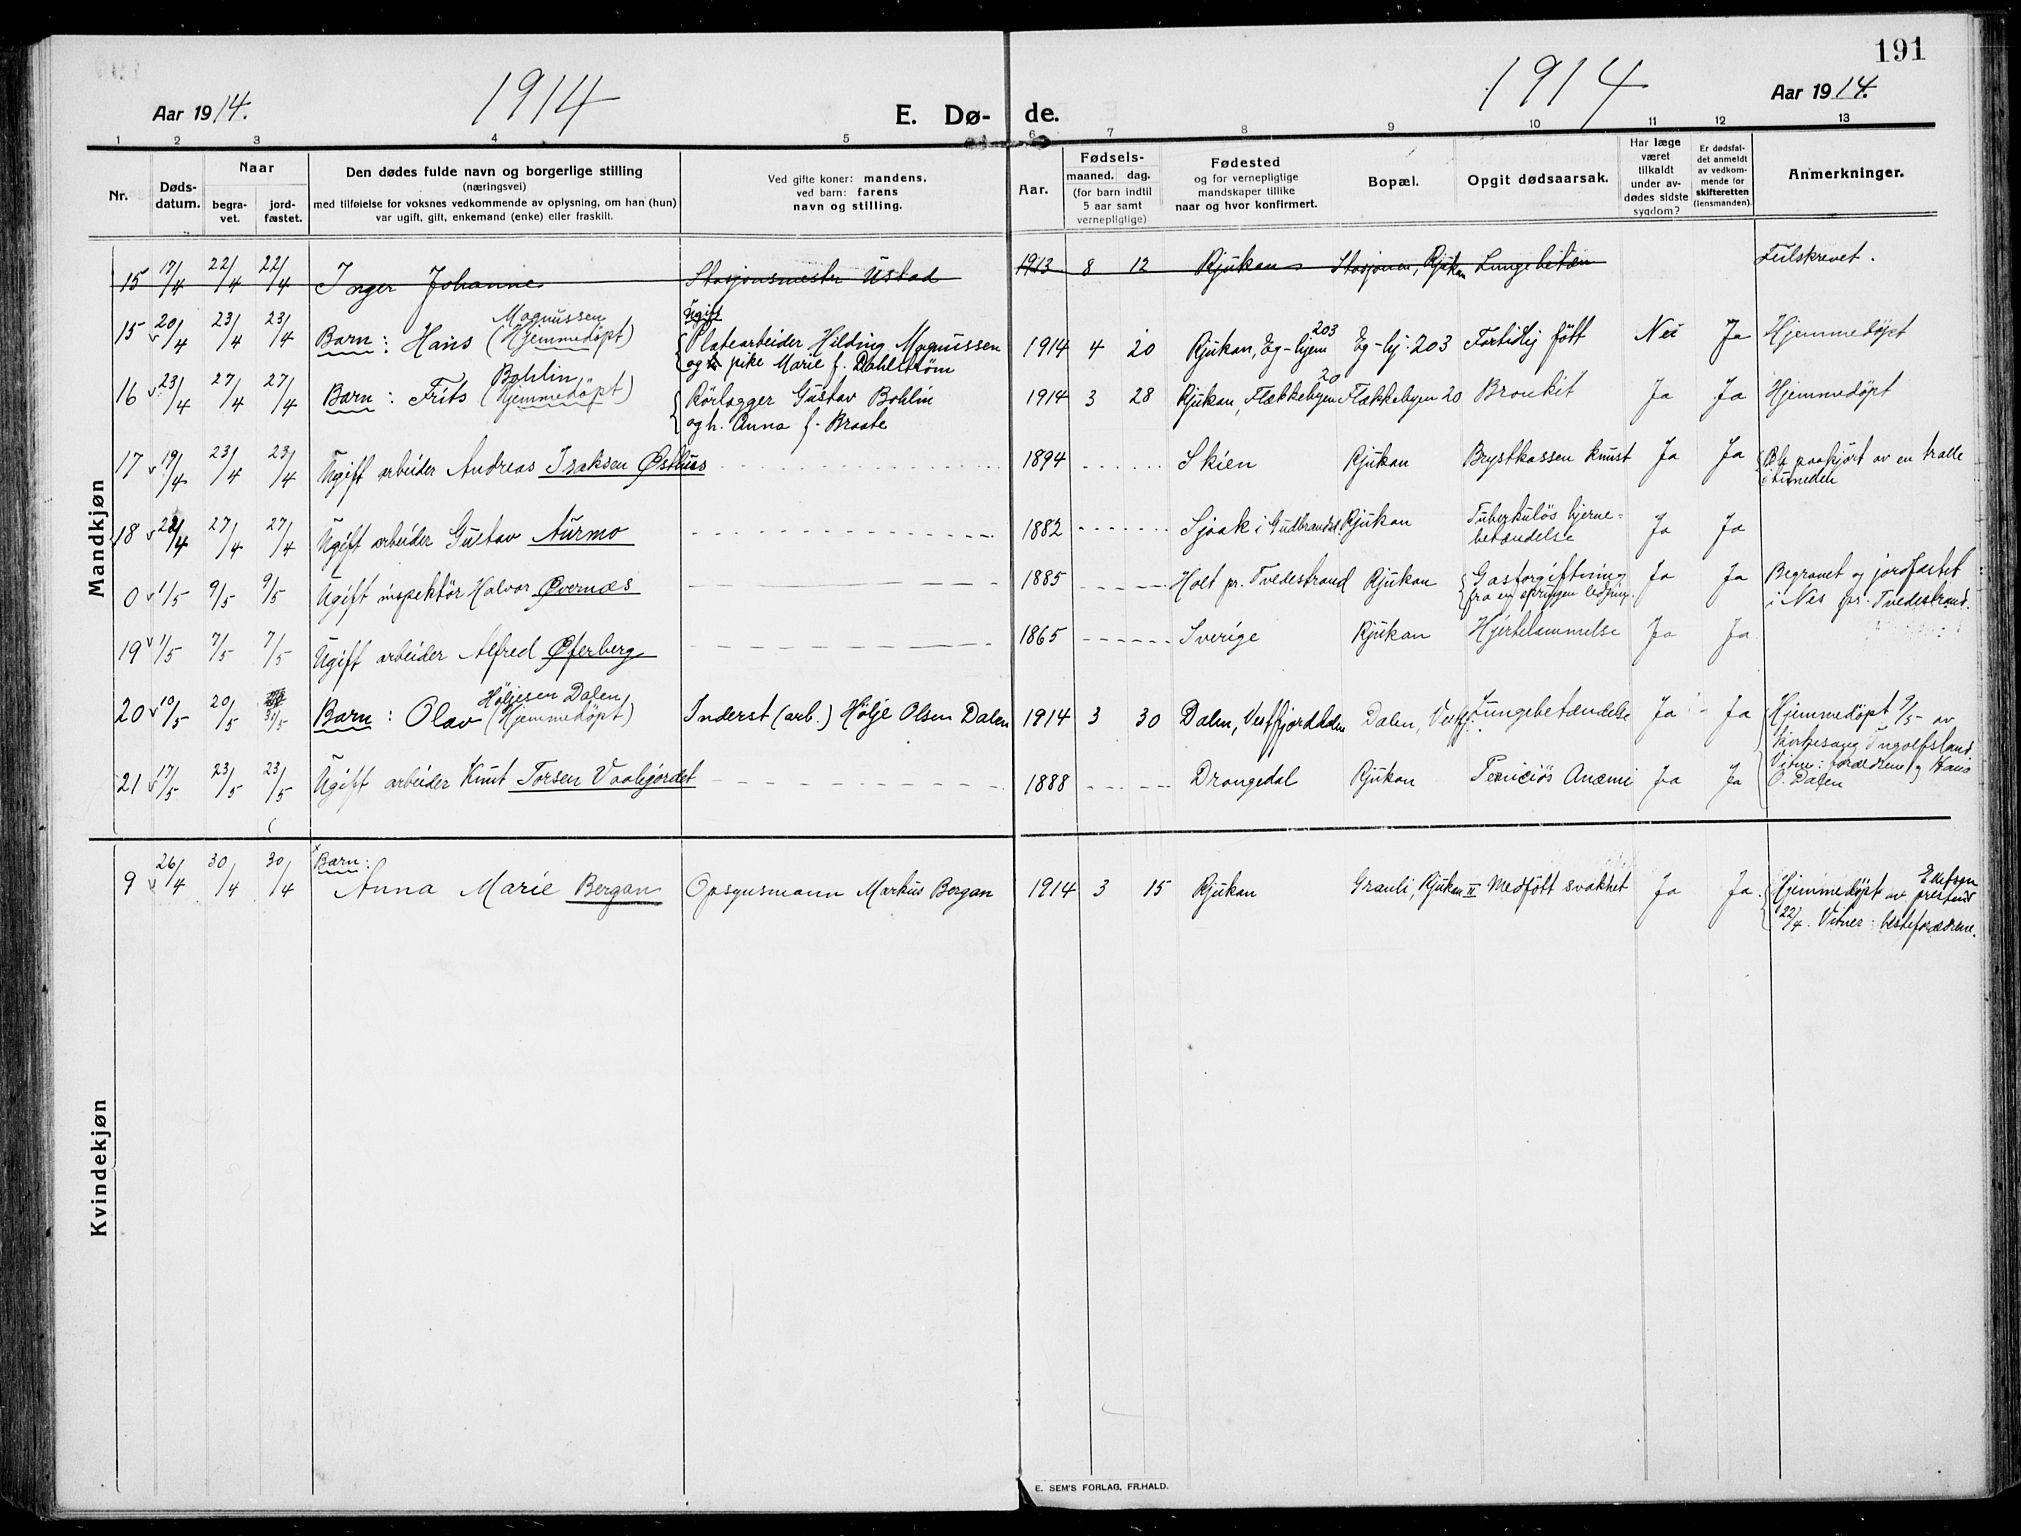 191
Aar 1914.
1914
E. Dø-
de.
1914
Aar 1914.
1 2 3 4 5 6 7 8 9 10 11 12 13
Nr.
Døds-
datum.
Naar
begra-
vet.
jord-
fæstet.
Den dødes fulde navn og borgerlige stilling
(næringsvei)
med tilføielse for voksnes vedkommende av oplysning, om han (hun)
var ugift, gift, enkemand (enke) eller fraskilt.
Ved gifte koner: mandens,
ved barn: farens
navn og stilling.
Aar.
Fødsels-
maaned. dag.
(for barn indtil
5 aar samt
vernepligtige)
Fødested
og for vernepligtige
mandskaper tillike
naar og hvor konfirmert.
Bopæl.
Opgit dødsaarsak.
Har læge
været
tilkaldt
under av-
dødes sidste
sygdom?
Er dødsfal-
det anmeldt
av vedkom-
mende for
skifteretten
(lensmanden).
Anmerkninger.
Mandkjøn
15 17/4 22/4 22/4 Inger Johanne Stasjonsmester Ustad 1913 8 12 Rjukan Stasjonen, Rjukan Lungebetæn Feilskrevet.
Magnussen
Ugift
203
15 20/4 23/4 23/4 Barn: Hans (Hjemmedøpt) Platearbeider Hilding Magnussen 1914 4 20 Rjukan, Eg-hjem Eg-hj. 203 Fortidlig født Nei Ja Hjemmedøpt
og pike Marie f. Dahlstrøm
Bohlin
20
16 23/4 27/4 27/4 Barn: Frits (Hjemmedøpt) Rørlægger Gustav Bohlin 1914 3 28 Rjukan, Flækkebyen Flækkebyen 20 Bronkit Ja Ja Hjemmedøpt
og h. Anna f. Braate
17 19/4 23/4 23/4 Ugift arbeider Andreas Isaksen Østhus 1894 Skien Rjukan Brystkassen knust Ja Ja Blev paakjørt av en tralle
i tunnelen
18 22/4 27/4 27/4 Ugift arbeider Gustav Aurmo 1882 Sjaak i Gudbrandsd. Rjukan Tuberkuløs hjerne- Ja Ja
betændelse
0 1/5 9/5 9/5 Ugift inspektør Halvor Øvernæs 1885 Holt pr. Tvedestrand Rjukan Gasforgiftning Ja Ja Begravet og jordfæstet
fra en sprungen ledning. i Næs pr. Tvedestrand.
19 1/5 7/5 7/5 Ugift arbeider Alfred Øferberg 1865 Sverige Rjukan Hjertelammelse Ja Ja
Høljesen Dalen
20 10/5 20/5 31/5 Barn: Olav (Hjemmedøpt) Inderst (arb.) Hølje Olsen Dalen 1914 3 30 Dalen, Vestfjorddalen Dalen, Vestfj. Lungebetændelse Ja Ja Hjemmedøpt 9/5 av
kirkesang. Ingolfsland
Vitne: forældrene og Hans
O. Dalen
21 17/5 23/5 23/5 Ugift arbeider Knut Torsen Vaalegårdet 1888 Drangedal Rjukan Perniciøs Anæmi Ja Ja
Kvindekjøn
Barn:
9 26/4 30/4 30/4 Anna Marie Bergan Opsynsmann Markus Bergan 1914 3 15 Rjukan Grauli, Rjukan II Medfødt svakhet Ja Ja Hjemmedøpt av
presten
22/4. Vitner: besteforældrene.
E. SEM'S FORLAG, FR.HALD.